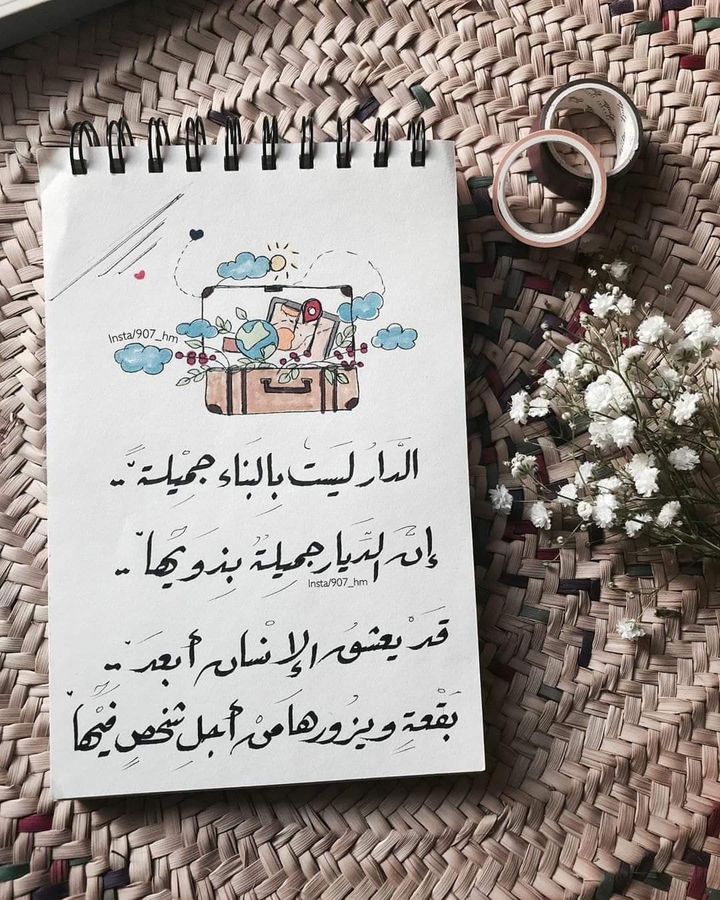 Insta/907_hm
الدّار ليسَت بالبنَاء جميْلة ..
إنّ الدّيار جميلةٌ بذويْها ..
Insta/907_hm
قدْ يعشق الإنْسان أبعدَ ..
بقْعةٍ ويزورها منْ أجلِ شخصٍ فيْها